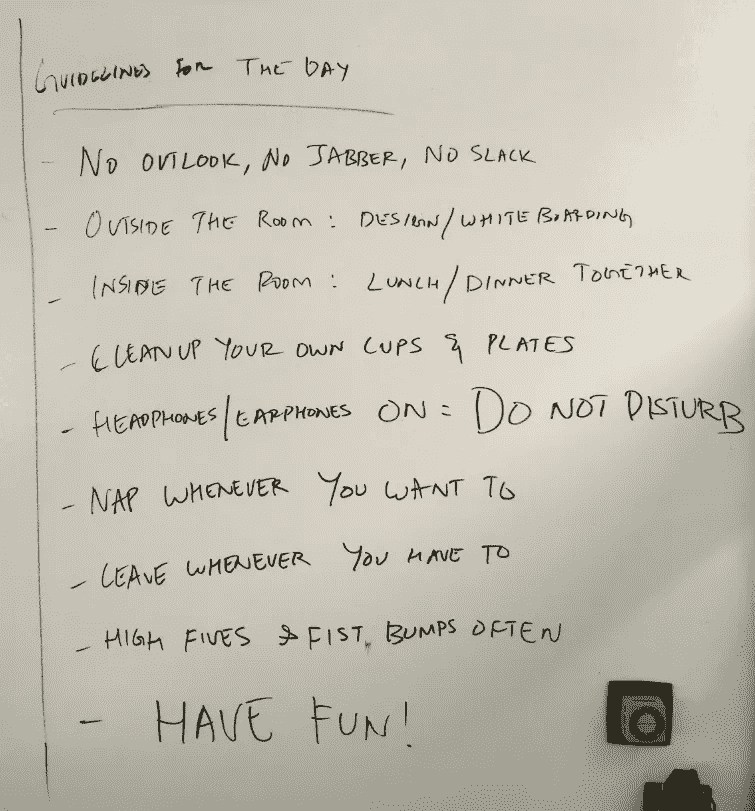 GUIDELINES FOR THE DAY
- NO OUTLOOK, NO JABBER, NO SLACK
- OUTSIDE THE ROOM : DESIGN/WHITE BOARDING
- INSIDE THE ROOM : LUNCH/DINNER TOGETHER
- CLEANUP YOUR OWN CUPS & PLATES
- HEADPHONES/EARPHONES ON = DO NOT DISTURB
- NAP WHENEVER YOU WANT TO
- LEAVE WHENEVER YOU HAVE TO
- HIGH FIVES & FIST BUMPS OFTEN
- HAVE FUN!